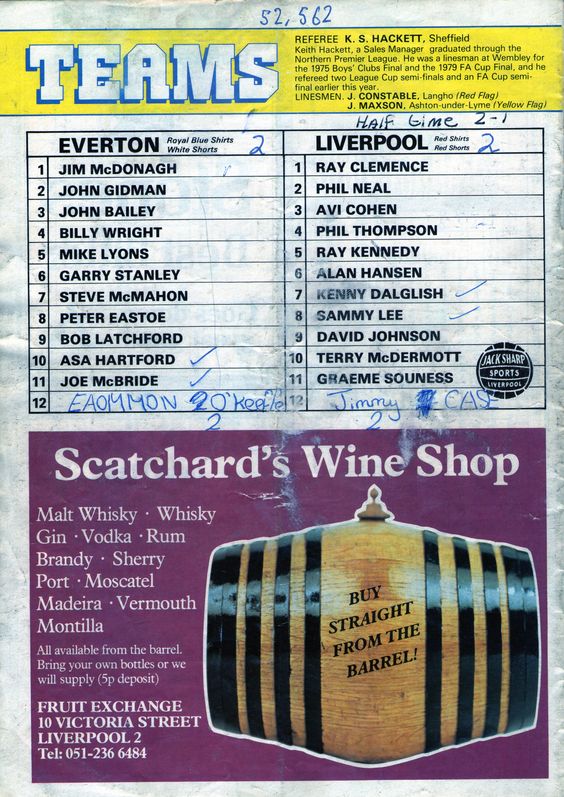 52,562
TEAMS
REFEREE K. S. HACKETT, Sheffield
Keith Hackett, a Sales Manager graduated through the
Northern Premier League. He was a linesman at Wembley for
the 1975 Boys' Clubs Final and the 1979 FA Cup Final, and he
refereed two League Cup semi-finals and an FA Cup semi-
final earlier this year.
LINESMEN. J. CONSTABLE, Langho (Red Flag)
J. MAXSON, Ashton-under-Lyme (Yellow Flag)
Half Time 2-1
EVERTON Royal Blue Shirts White Shorts 2
1 JIM McDONAGH
2 JOHN GIDMAN
3 JOHN BAILEY
4 BILLY WRIGHT
5 MIKE LYONS
6 GARRY STANLEY
7 STEVE McMAHON
8 PETER EASTOE
9 BOB LATCHFORD
10 ASA HARTFORD ✓
11 JOE McBRIDE ✓
12 EAOMMON O'Keefe
2
LIVERPOOL Red Shirts Red Shorts 2
1 RAY CLEMENCE
2 PHIL NEAL
3 AVI COHEN
4 PHIL THOMPSON
5 RAY KENNEDY
6 ALAN HANSEN
7 KENNY DALGLISH ✓
8 SAMMY LEE ✓
9 DAVID JOHNSON
10 TERRY McDERMOTT
11 GRAEME SOUNESS
12 Jimmy CASE
2
JACK SHARP
SPORTS
LIVERPOOL
Scatchard's Wine Shop
Malt Whisky · Whisky
Gin · Vodka · Rum
Brandy · Sherry
Port · Moscatel
Madeira · Vermouth
Montilla
All available from the barrel.
Bring your own bottles or we
will supply (5p deposit)
FRUIT EXCHANGE
10 VICTORIA STREET
LIVERPOOL 2
Tel: 051-236 6484
BUY
STRAIGHT
FROM THE
BARREL!